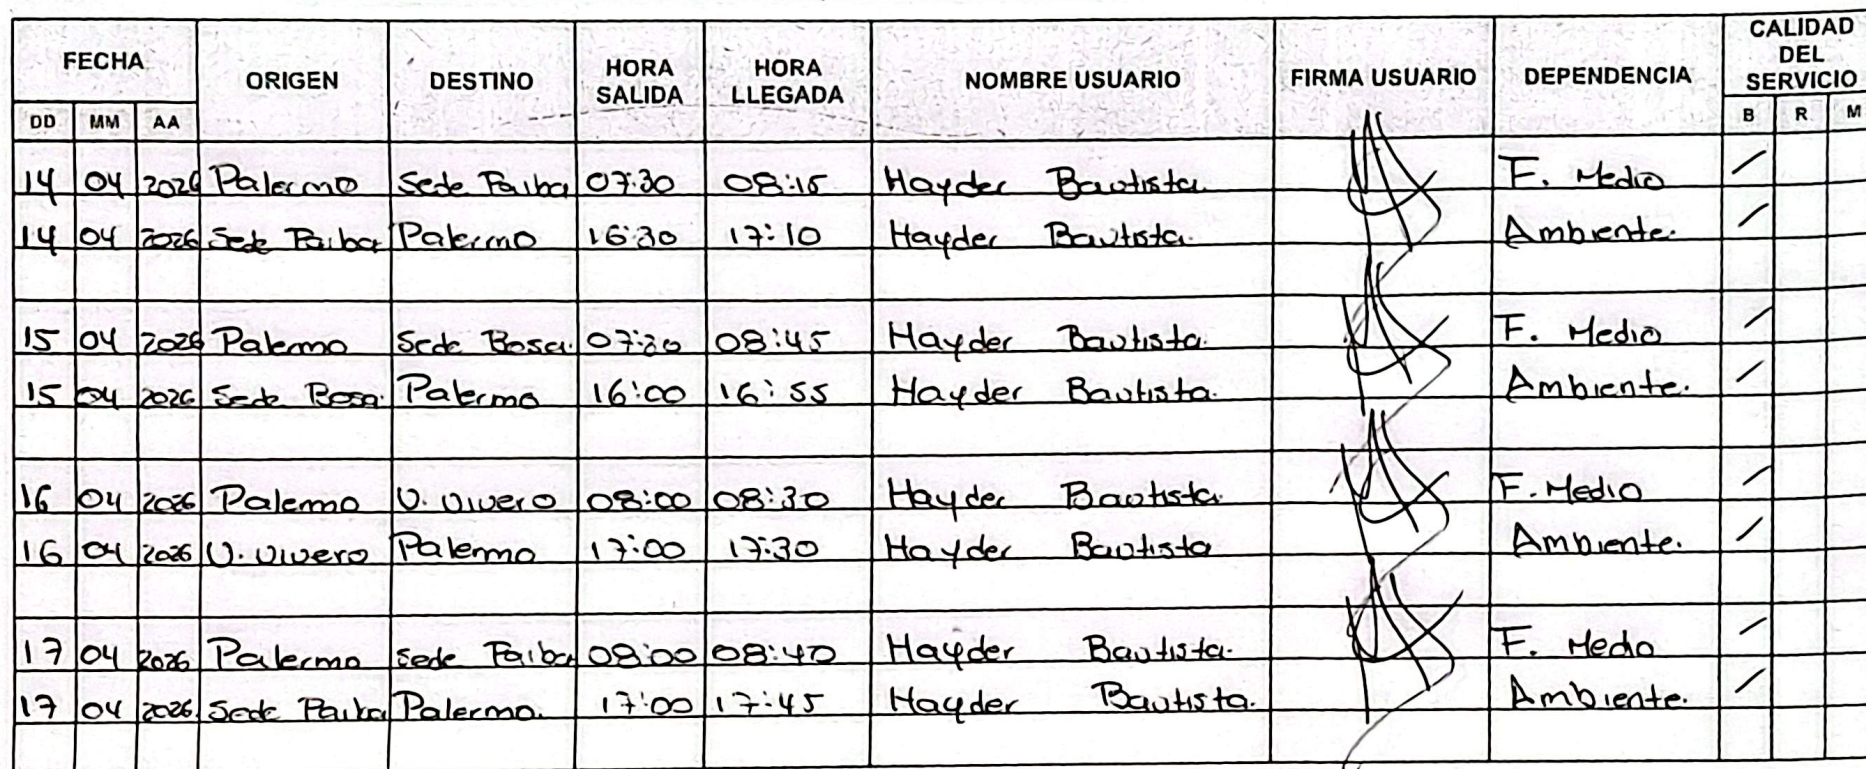 FECHA ORIGEN DESTINO HORA SALIDA HORA LLEGADA NOMBRE USUARIO FIRMA USUARIO DEPENDENCIA CALIDAD DEL SERVICIO
DD MM AA B R M
14 04 2026 Palermo Sede Paiba 07:30 08:15 Hayder Bautista. F. Medio /
14 04 2026 Sede Paiba Palermo 16:30 17:10 Hayder Bautista. Ambiente. /
15 04 2026 Palermo Sede Bosa. 08:45 Hayder Bautista. F. Medio /
15 04 2026 Sede Bosa. Palermo 16:00 16:55 Hayder Bautista. Ambiente. /
16 04 2026 Palermo U. Vivero 08:00 08:30 Hayder Bautista. F. Medio /
16 04 2026 U. Vivero Palermo 17:00 17:30 Hayder Bautista Ambiente. /
17 04 2026 Palermo Sede Paiba 08:00 08:40 Hayder Bautista. F. Medio /
17 04 2026 Sede Paiba Palermo. 17:00 17:45 Hayder Bautista. Ambiente. /